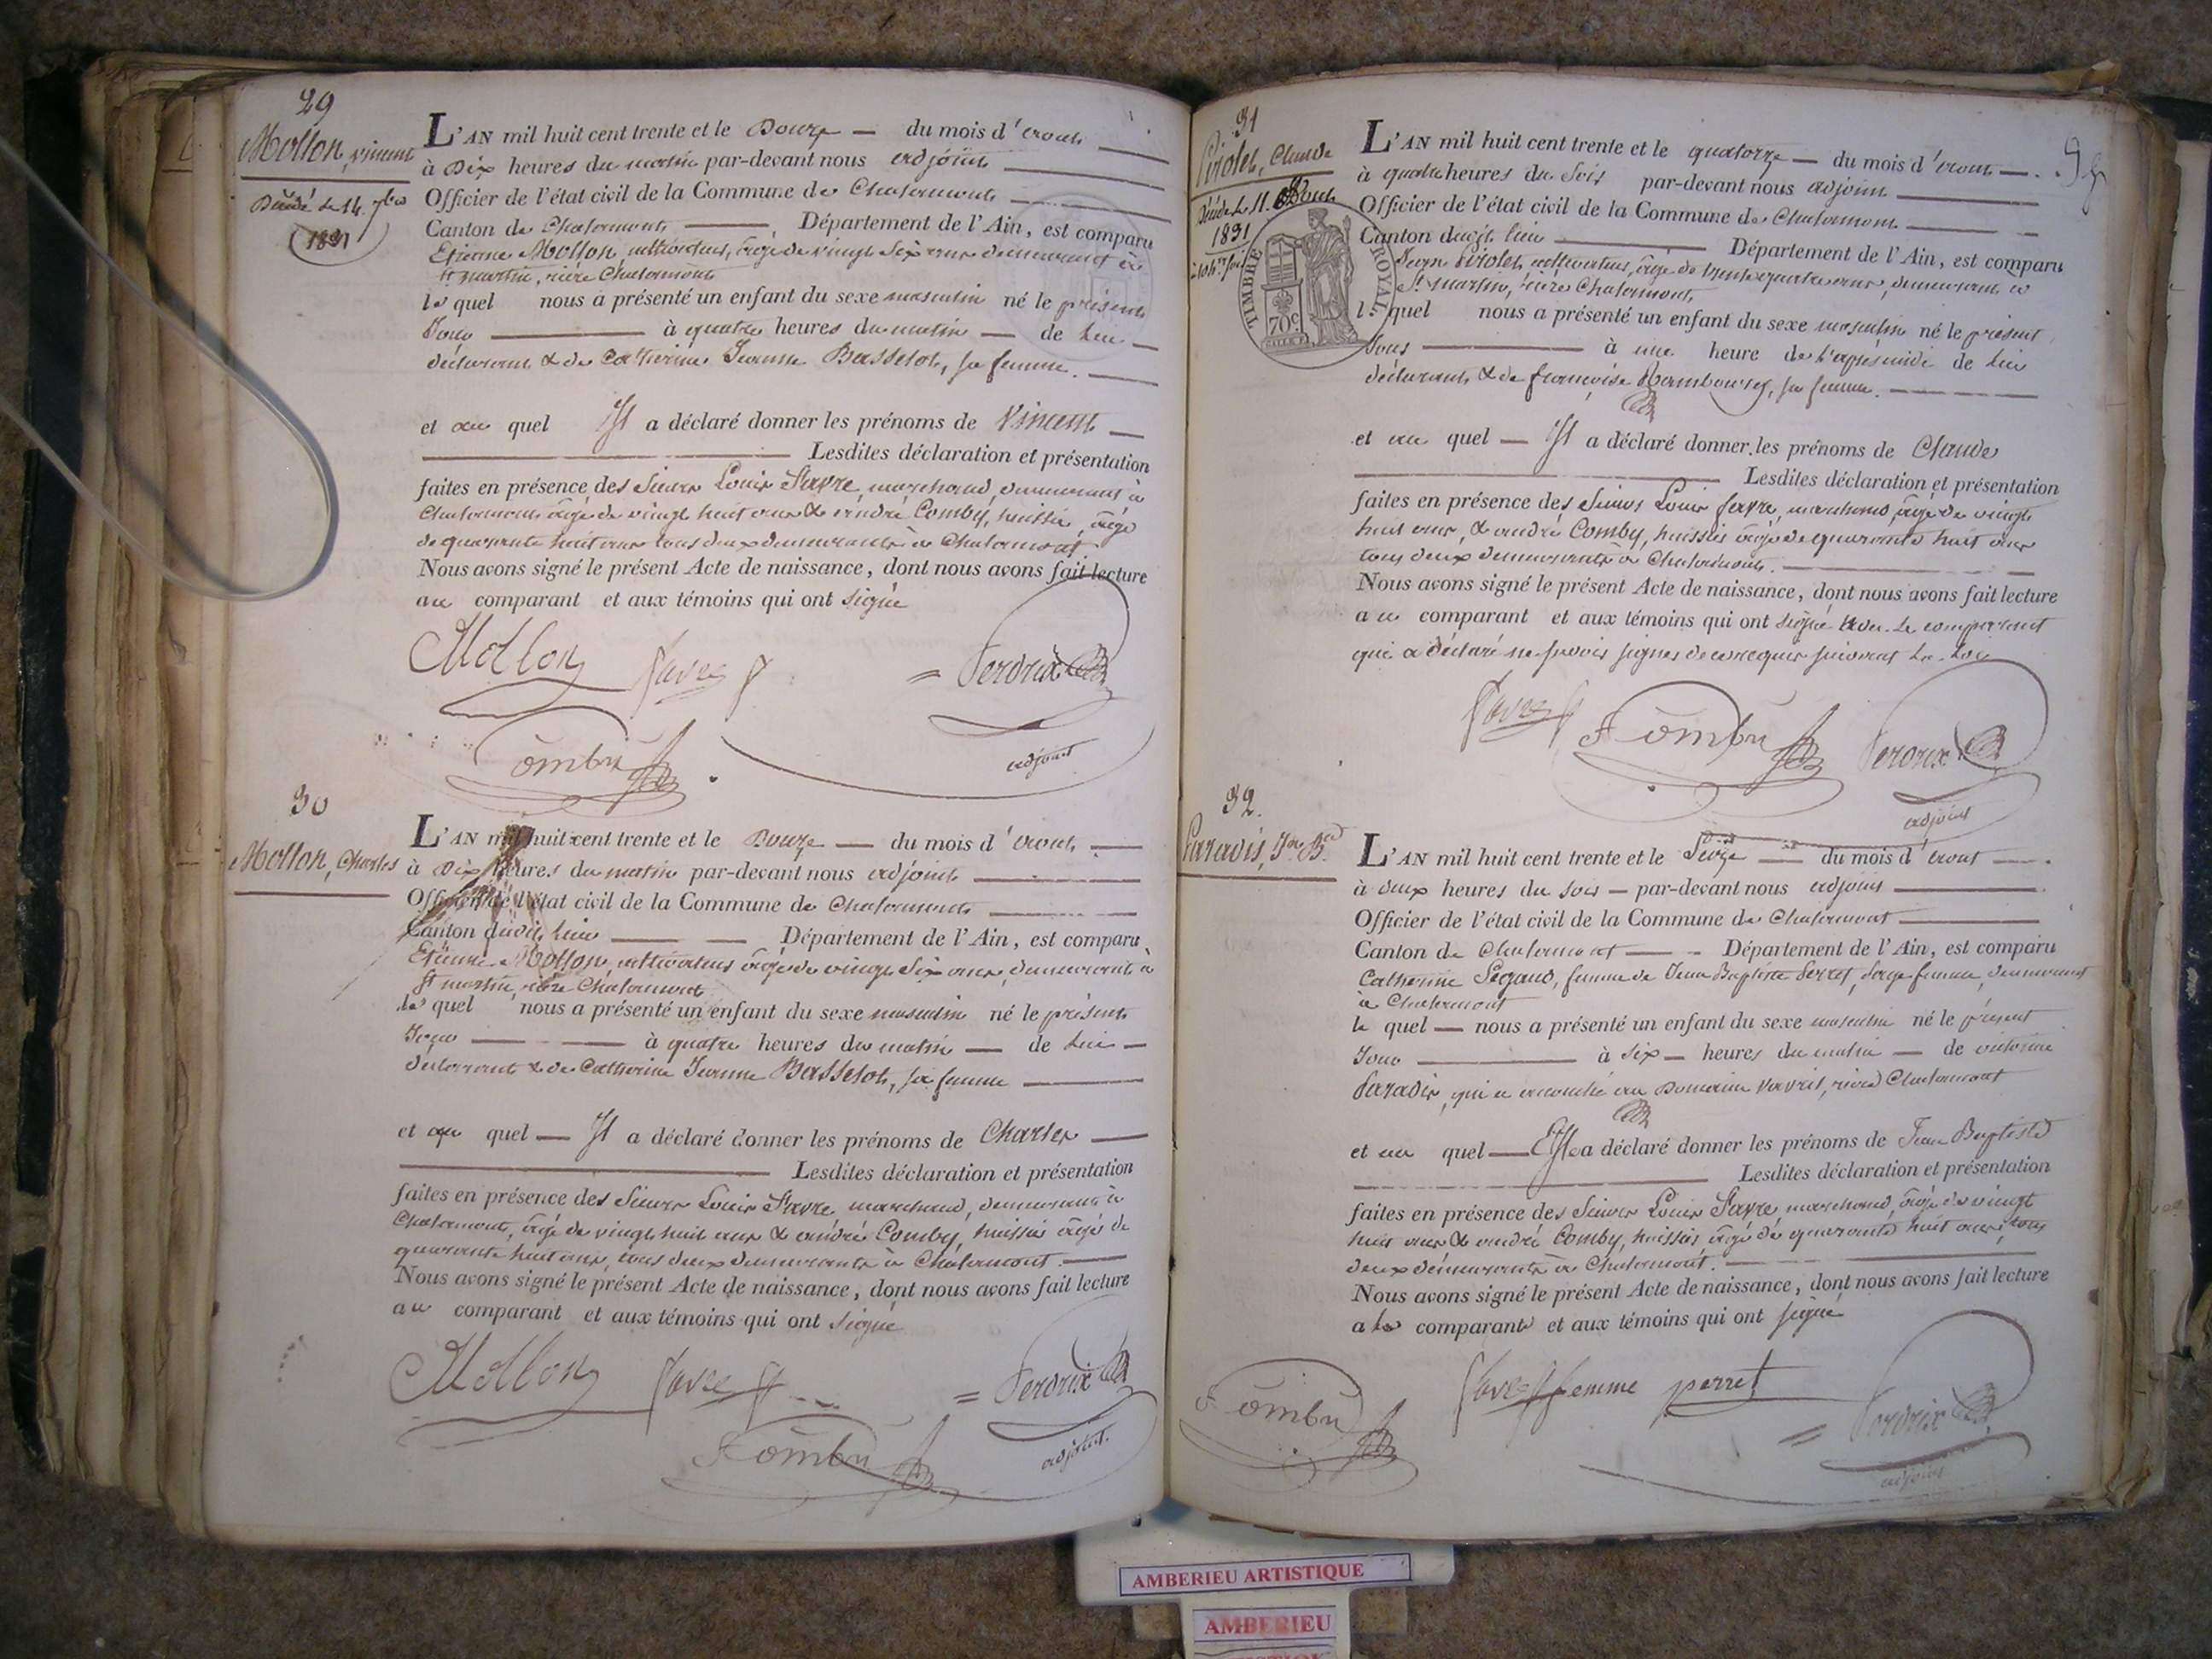 29
Mollon, vincent
Décédé le 14 7bre
1831
L'AN mil huit cent trente et le Douze — du mois d'aout
à Dix heures du matin par-devant nous adjoint
Officier de l'état civil de la Commune de Chalamont
Canton de Chalamont, Département de l'Ain, est comparu
Etienne Mollon, cultivateur, âgé de vingt six ans demeurant à
St martin, rière Chalamont
le quel nous a présenté un enfant du sexe masculin né le présent
Jour à quatre heures du matin — de lui
déclarant & de Catherine Jeanne Basselot, sa femme.
et au quel Il a déclaré donner les prénoms de Vincent
Lesdites déclaration et présentation
faites en présence des Sieurs Louis Favre, marchand, demeurant à
Chalamont âgé de vingt huit ans & andré Comby, huissier, âgé
de quarante huit ans tous deux demeurants à Chalamont
Nous avons signé le présent Acte de naissance, dont nous avons fait lecture
au comparant et aux témoins qui ont signé
Mollon favre = Perdrix
Comby adjoint
30
Mollon, Charles
L'AN mil huit cent trente et le Douze — du mois d'aout
à Dix heures du matin par-devant nous adjoint
Officier de l'état civil de la Commune de Chalamont
Canton dudit lieu Département de l'Ain, est comparu
Etienne Mollon, cultivateur âgé de vingt six ans, demeurant à
St martin, rière Chalamont
le quel nous a présenté un enfant du sexe masculin né le présent
Jour à quatre heures du matin — de lui
déclarant & de Catherine Jeanne Basselot, sa femme
et au quel — Il a déclaré donner les prénoms de Charles
Lesdites déclaration et présentation
faites en présence des Sieurs Louis Favre marchand, demeurant à
Chalamont, âgé de vingt huit ans & andré Comby, huissier âgé de
quarante huit ans, tous deux demeurants à Chalamont.
Nous avons signé le présent Acte de naissance, dont nous avons fait lecture
au comparant et aux témoins qui ont signé
Mollon favre = Perdrix
Comby adjoint.
31
Pirolet, Claude
Décédé le 11. Aout
1831
TIMBRE ROYAL
70c
L'AN mil huit cent trente et le quatorze — du mois d'aout —
à quatre heures du soir par-devant nous adjoint
Officier de l'état civil de la Commune de Chalamont
Canton dudit lieu Département de l'Ain, est comparu
Pirolet, cultivateur, âgé de trente quatre ans, demeurant à
St martin, rière Chalamont,
le quel nous a présenté un enfant du sexe masculin né le présent
Jour à une heure de l'après midi de lui
déclarant, & de françoise Rambourg, sa femme.
et au quel — Il a déclaré donner les prénoms de Claude
Lesdites déclaration et présentation
faites en présence des Sieurs Louis favre, marchand, âgé de vingt
huit ans, & andré Comby, huissier âgé de quarante huit ans
tous deux demeurants à Chalamont.
Nous avons signé le présent Acte de naissance, dont nous avons fait lecture
au comparant et aux témoins qui ont signé non le comparant
qui a déclaré ne savoir signer de ce requis suivant la Loi
favre Comby Perdrix
adjoint
32.
Paradis, Jn Bte
L'AN mil huit cent trente et le Seize — du mois d'aout
à deux heures du soir — par-devant nous adjoint
Officier de l'état civil de la Commune de Chalamont
Canton de Chalamont Département de l'Ain, est comparu
Catherine Pegaud, femme de Jean Baptiste Perret, sage femme, demeurant
à Chalamont
la quel — nous a présenté un enfant du sexe masculin né le présent
Jour à six — heures du matin — de victorine
Paradis, qui a accouché au Domaine Vavril, rière Chalamont
et au quel — Elle a déclaré donner les prénoms de Jean Baptiste
Lesdites déclaration et présentation
faites en présence des Sieurs Louis Favre marchand, âgé de vingt
huit ans & andré Comby, huissier âgé de quarante huit ans, tous
deux demeurants à Chalamont.
Nous avons signé le présent Acte de naissance, dont nous avons fait lecture
a la comparante et aux témoins qui ont signé
Comby favre femme perret = Perdrix
adjoint
AMBERIEU ARTISTIQUE
AMBERIEU